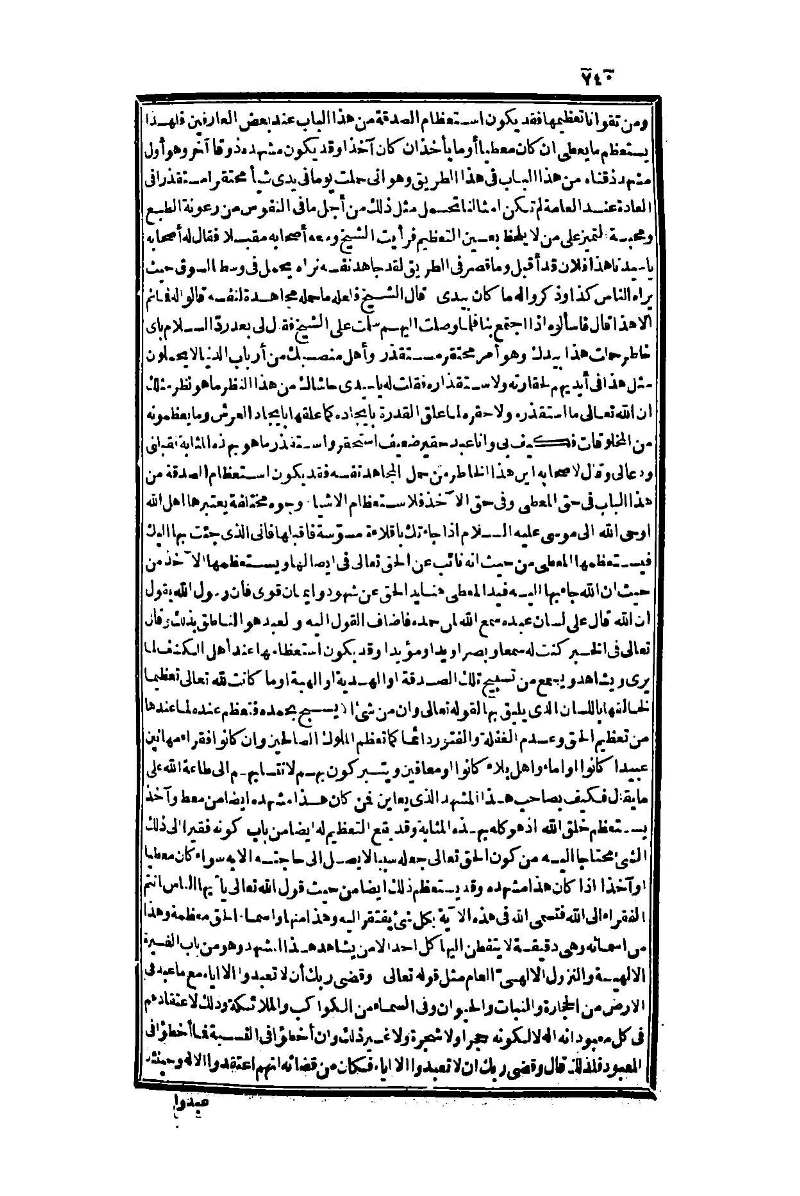 ٧٤٠
ومن تقوانا تعظيمها فقد يكون استعظام الصدقة من هذا الباب عند بعض العارفين فلهذا
يستعظم ما يعطى ان كان معطيا أو ما يأخذ ان كان آخذا وقد يكون مشهده ذوقا آخر وهو أول
مشهد ذقناه من هذا الباب فى هذا الطريق وهو انى حملت يوما فى يدى شيأ محتقرا مستقذرا فى
العادة عند العامة لم تكن امثالنا تحمل مثل ذلك من أجل ما فى النفوس من رعونة الطبع
ومحبة التميز على من لا يلحظ بعين التعظيم فرآنى الشيخ ومعه أصحابه مقبلا فقال له أصحابه
يا سيدنا هذا فلان قد أقبل وما قصر فى الطريق لقد جاهد نفسه نراه يحمل فى وسط السوق حيث
يراه الناس كذا وذكروا له ما كان بيدى قال الشيخ فلعله ما حمله مجاهدة لنفسه قالوا له فما ثم
الا هذا قال فاسألوه اذا اجتمع بنا فلما وصلت اليهم سلمت على الشيخ فقال لى بعد رد السلام بأى
خاطر حملت هذا بيدك وهو أمر محتقر مستقذر وأهل منصبك من أرباب الدنيا لا يحملون
مثل هذا فى أيديهم لحقارته ولاستقذاره فقلت له يا سيدى حاشاك من هذا النظر ما هو نظر مثلك
ان الله تعالى ما استقذره ولا حقره لما علق القدرة بايجاده كما علقها بايجاد العرش وما يعظمونه
من المخلوقات فكيف بى وانا عبد حقير ضعيف استحقر واستقذر ما هو بهذه المثابة فقبلنى
ودعا لى وقال لاصحابه اين هذا الخاطر من حمل المجاهد نفسه فقد يكون استعظام الصدقة من
هذا الباب فى حق المعطى وفى حق الآخذ فلاستعظام الاشياء وجوه مختلفة يعتبرها اهل الله
اوحى الله الى موسى عليه السلام اذا جاءتك باقلاءة مسوسة فاقبلها فانى الذى جئت بها اليك
فيستعظمها المعطى من حيث انه نائب عن الحق تعالى فى ايصالها ويستعظمها الآخذ من
حيث ان الله جاء بها اليه فيد المعطى هنا يد الحق عن شهود وايمان قوى فان رسول الله يقول
ان الله قال على لسان عبده سمع الله لمن حمده فاضاف القول اليه والعبد هو الناطق بذلك وقال
تعالى فى الخبر كنت له سمعا وبصرا ويدا ومؤيدا وقد يكون استعظامها عند أهل الكشف لما
يرى ويشاهد ويسمع من تسبيح تلك الصدقة او الهدية او الهبة او ما كانت لله تعالى تعظيما
لخالقها باللسان الذى يليق بها لقوله تعالى وان من شئ الا يسبح بحمده فتعظم عنده لما عندها
من تعظيم الحق وعدم الغفلة والفتور دائما كما تعظم الملوك الصالحين وان كانوا فقراء مهانين
عبيدا كانوا او اماء واهل بلاء كانوا او معافين ويتبركون بهم لانتسابهم الى طاعة الله على
ما يقال فكيف بصاحب هذا المشهد الذى يعاين فمن كان هذا مشهده ايضا من معط وآخذ
يستعظم خلق الله اذ هو كله بهذه المثابة وقد يقع التعظيم له ايضا من باب كونه فقيرا الى ذلك
الشئ محتاجا اليه من كون الحق تعالى جعله سببا لا يصل الى حاجته الا به سواء كان معطيا
او آخذا اذا كان هذا مشهده وقد يستعظم ذلك ايضا من حيث قول الله تعالى يأيها الناس انتم
الفقراء الى الله فتسمى الله فى هذه الآية بكل شئ يفتقر اليه وهذا منها واسماء الحق معظمة وهذا
من اسمائه وهى دقيقة لا يتفطن اليها كل احد الا من يشاهد هذا المشهد وهو من باب الغيرة
الالهية والنزول الالهى العام مثل قوله تعالى وقضى ربك أن لا تعبدوا الا اياه مع ما عبد فى
الارض من الحجارة والنبات والحيوان وفى السماء من الكواكب والملائكة وذلك لاعتقادهم
فى كل معبود انه اله لا لكونه حجرا ولا شجرة ولا غير ذلك وان أخطؤا فى النسبة فما أخطؤا فى
المعبود فلذلك قال وقضى ربك ان لا تعبدوا الا اياه فكان من قضائه انهم اعتقدوا الاله وحينئذ
عبدوا